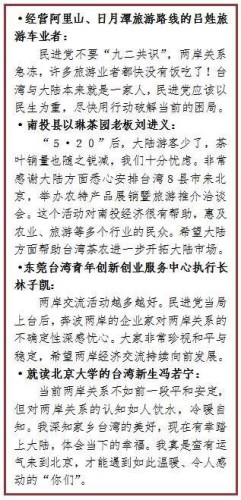 ·经营阿里山、日月潭旅游路线的吕姓旅
游车业者：
民进党不要“九二共识”，两岸关系
急冻，许多旅游业者都快没有饭吃了！台
湾与大陆本来就是一家人，民进党应该以
民生为重，尽快用行动破解当前的困局。
·南投县以琳茶园老板刘进义：
“5·20”后，大陆游客少了，茶
叶销量也随之锐减，我们十分忧虑。非常
感谢大陆方面悉心安排台湾8县市来北
京，举办农特产品展销暨旅游推介洽谈
会。这个活动对南投经济很有帮助，惠及
农业、旅游等多个行业的民众。希望大陆
方面帮助台湾茶农进一步开拓大陆市场。
·东莞台湾青年创新创业服务中心执行长
林子凯：
两岸交流活动越多越好。民进党当局
上台后，奔波两岸的企业家对两岸关系的
不确定性深感忧心。大家非常珍视和平与
稳定，希望两岸经济交流持续向前发展。
·就读北京大学的台湾新生冯若宁：
当前两岸关系不如前一段平和安定，
但对两岸关系的认知如人饮水，冷暖自
知。我深知家乡台湾的美好，现在有幸踏
上大陆，体会当下的幸福。我真是蛮有运
气来到北京，才能遇到如此温暖、令人感
动的“你们”。